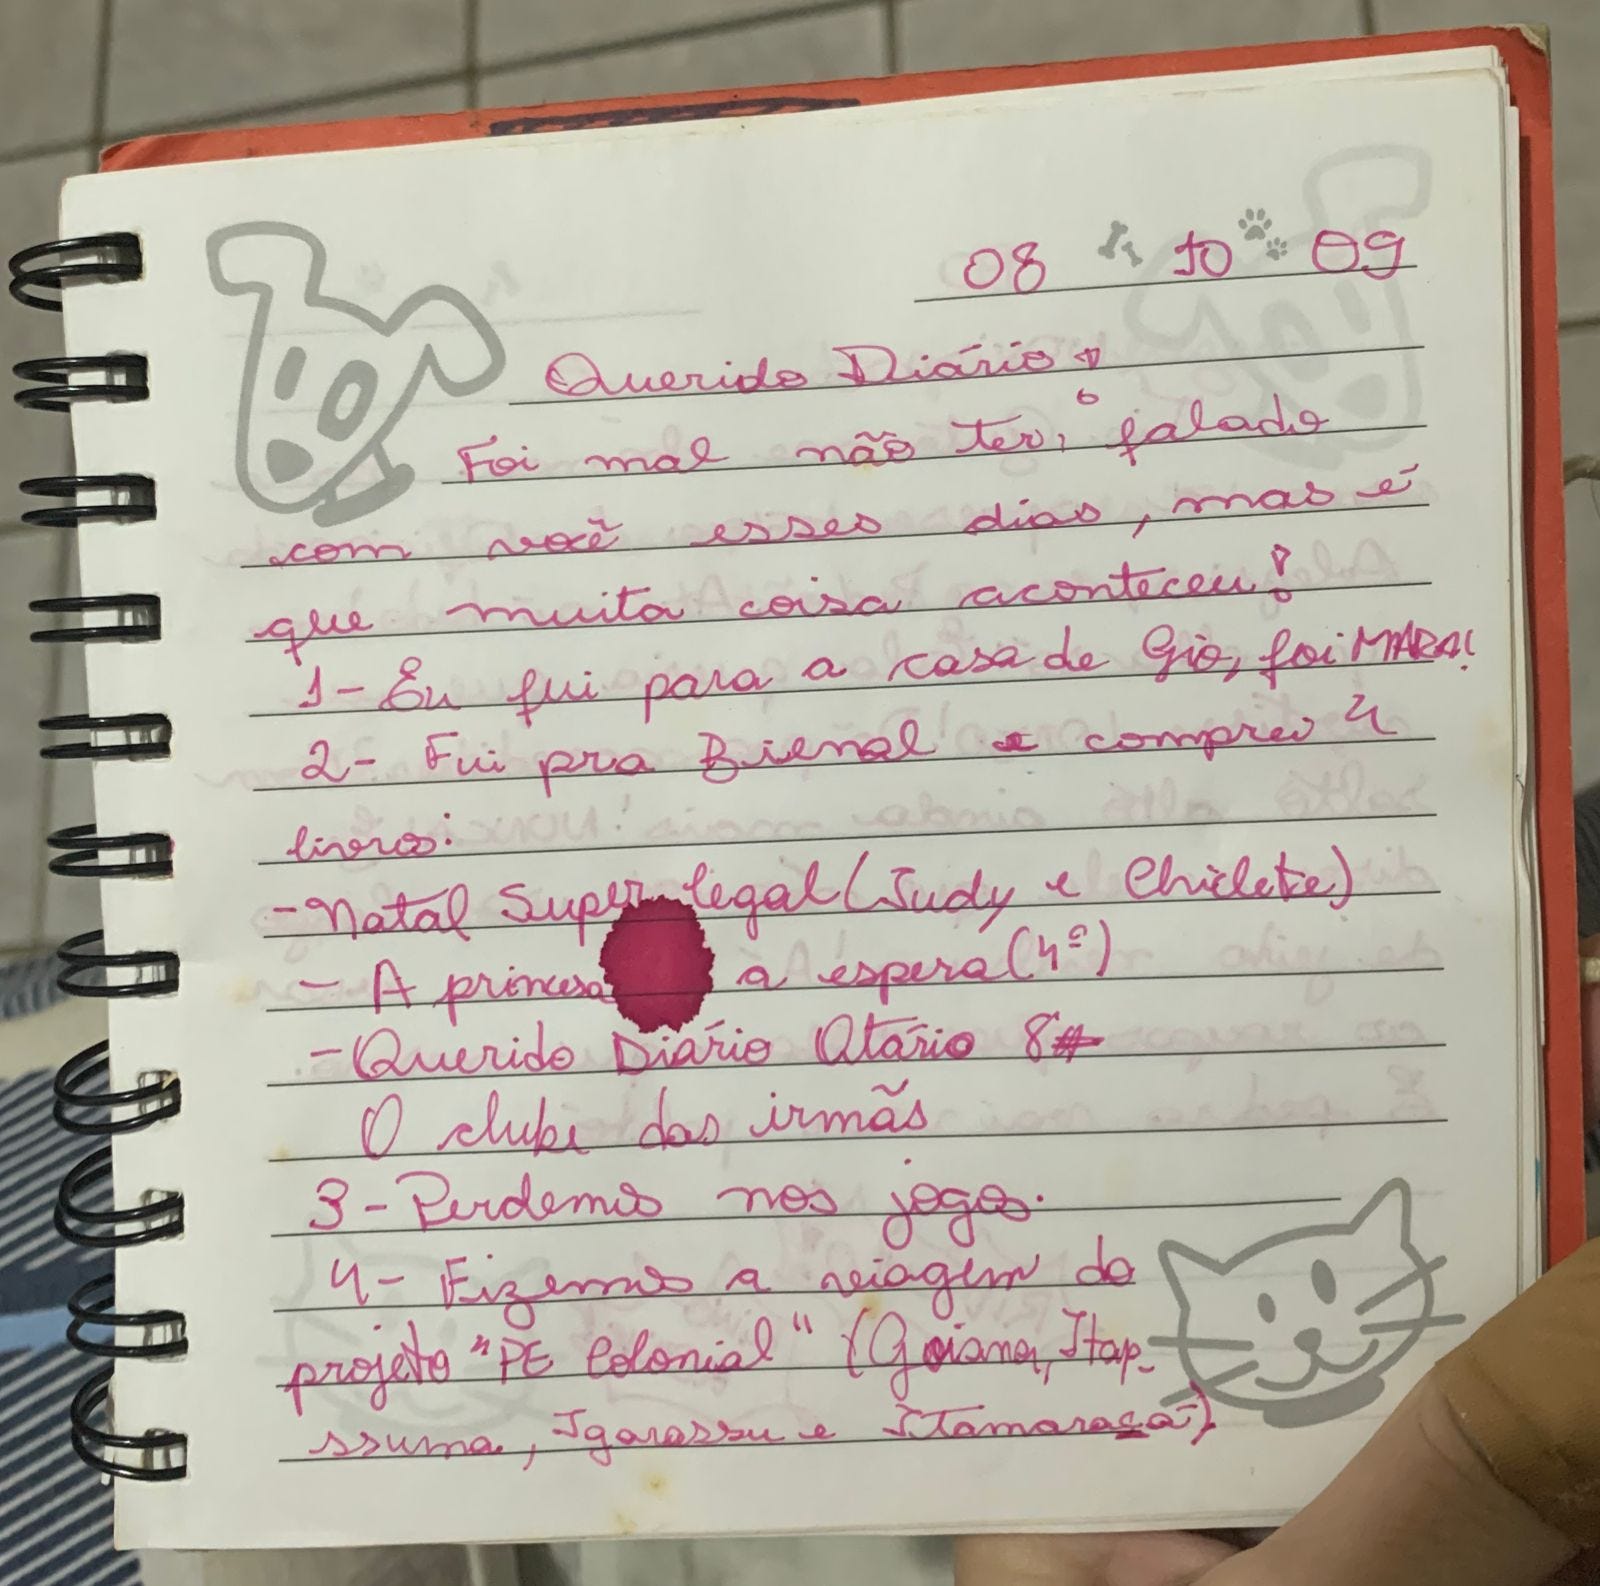 08 10 09
Querido Diário!
Foi mal não ter, falado
com você esses dias, mas é
que muita coisa aconteceu!
1- Eu fui para a casa de Gio, foi MARA!
2- Fui pra Bienal e comprei 4
livros:
- Natal Super legal (Judy e Chiclete)
- A princesa a espera (4º)
- Querido Diário Otário 8#
O clube das irmãs
3- Perdemos nos jogos.
4- Fizemos a viagem do
projeto "PE Colonial" (Goiana, Itap-
ssuma, Igarassu e Itamaracá)